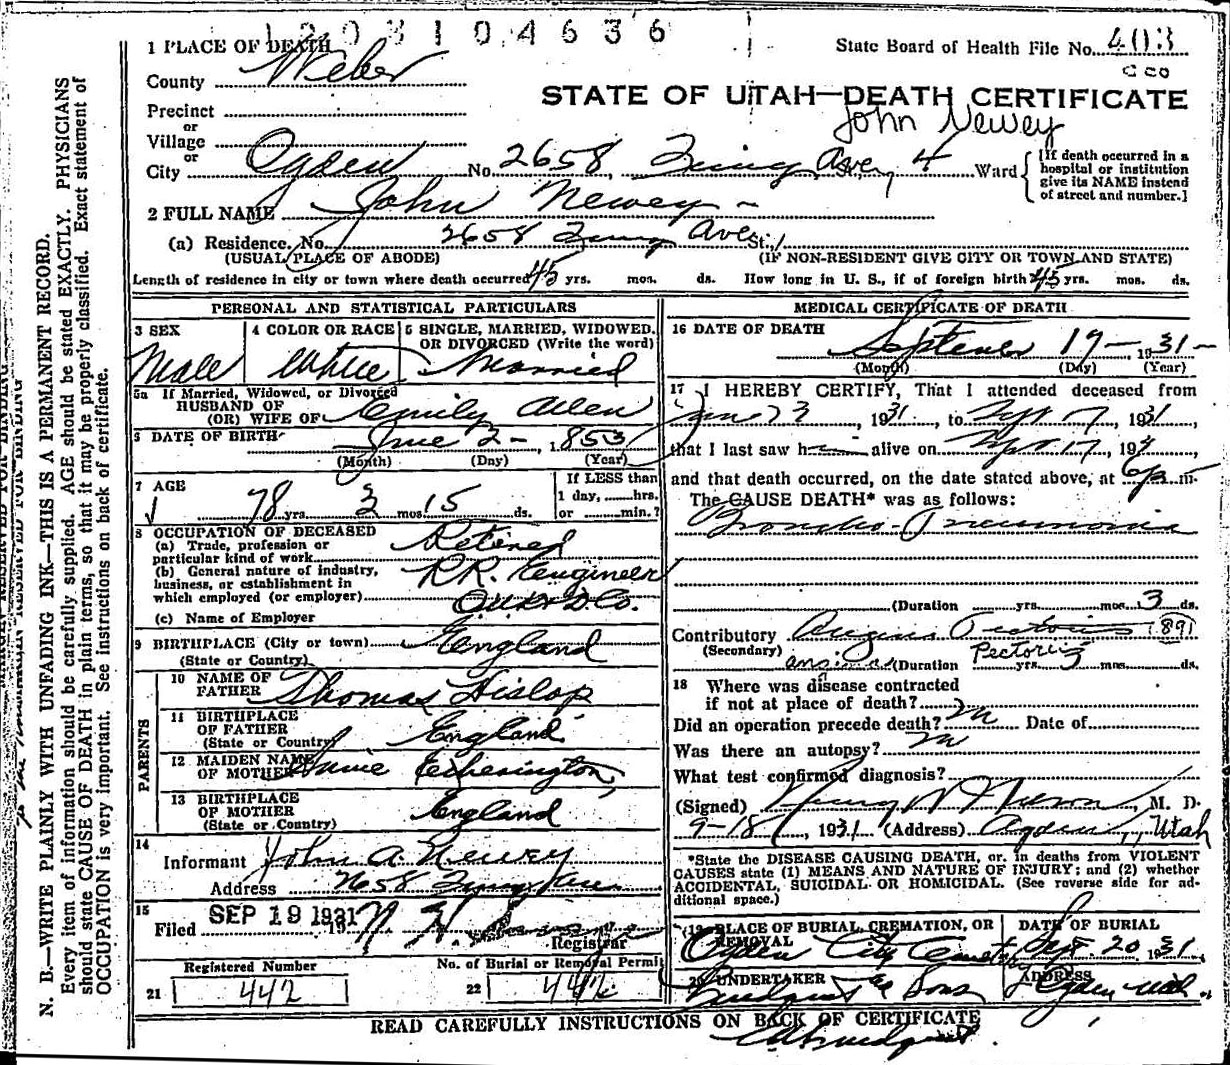 12031 04636
1 PLACE OF DEATH
State Board of Health File No. 403
County Weber
STATE OF UTAH—DEATH CERTIFICATE
John Newey
Precinct
or
Village
or
City Ogden No. 2658 Ave, 4 Ward
[If death occurred in a
hospital or institution
give its NAME instead
of street and number.]
2 FULL NAME John Newey
(a) Residence. No. 2658 Ave St.
(USUAL PLACE OF ABODE) (IF NON-RESIDENT GIVE CITY OR TOWN AND STATE)
Length of residence in city or town where death occurred 45 yrs. mos. ds. How long in U. S., if of foreign birth 45 yrs. mos. ds.
PERSONAL AND STATISTICAL PARTICULARS
3 SEX
Male
4 COLOR OR RACE
White
5 SINGLE, MARRIED, WIDOWED.
OR DIVORCED (Write the word)
Married
5a If Married, Widowed, or Divorced
HUSBAND OF
(OR) WIFE OF Emily Allen
6 DATE OF BIRTH June 2 - 1853
(Month) (Day) (Year)
7 AGE
78 yrs. 3 mos. 15 ds.
If LESS than
1 day, ......hrs.
or ......min.?
8 OCCUPATION OF DECEASED
(a) Trade, profession or
particular kind of work Retired
(b) General nature of industry,
business, or establishment in
which employed (or employer) RR. Engineer
(c) Name of Employer
9 BIRTHPLACE (City or town) England
(State or Country)
PARENTS
10 NAME OF
FATHER Thomas Hislop
11 BIRTHPLACE
OF FATHER England
(State or Country)
12 MAIDEN NAME
OF MOTHER Annie Etherington
13 BIRTHPLACE
OF MOTHER England
(State or Country)
14
Informant John A. Newey
Address 2658
15
Filed SEP 19 1931
Registrar
Registered Number
21 442
No. of Burial or Removal Permit
22 442
MEDICAL CERTIFICATE OF DEATH
16 DATE OF DEATH
September 17 - 1931 -
(Month) (Day) (Year)
17 I HEREBY CERTIFY, That I attended deceased from
June 23, 1931, to Sept 17, 1931
that I last saw h alive on Sept 17, 19
and that death occurred, on the date stated above, at 6 p m
The CAUSE DEATH* was as follows:
Broncho-Pneumonia
(Duration yrs. mos. 3 ds.
Contributory Angina Pectoris (89)
(Secondary)
angina Pectoris
(Duration yrs. 3 mos. ds.
18 Where was disease contracted
if not at place of death?
Did an operation precede death? Date of
Was there an autopsy?
What test confirmed diagnosis?
(Signed) M. D.
9-18, 1931 (Address) Ogden, Utah
*State the DISEASE CAUSING DEATH, or, in deaths from VIOLENT
CAUSES state (1) MEANS AND NATURE OF INJURY; and (2) whether
ACCIDENTAL, SUICIDAL OR HOMICIDAL. (See reverse side for ad-
ditional space.)
19 PLACE OF BURIAL, CREMATION, OR
REMOVAL
Ogden City Cemetery
DATE OF BURIAL
Sept 20 1931
20 UNDERTAKER
& Sons
ADDRESS
Ogden Utah
READ CAREFULLY INSTRUCTIONS ON BACK OF CERTIFICATE
N. B.—WRITE PLAINLY WITH UNFADING INK—THIS IS A PERMANENT RECORD.
Every item of information should be carefully supplied. AGE should be stated EXACTLY. PHYSICIANS
should state CAUSE OF DEATH in plain terms, so that it may be properly classified. Exact statement of
OCCUPATION is very important. See instructions on back of certificate.